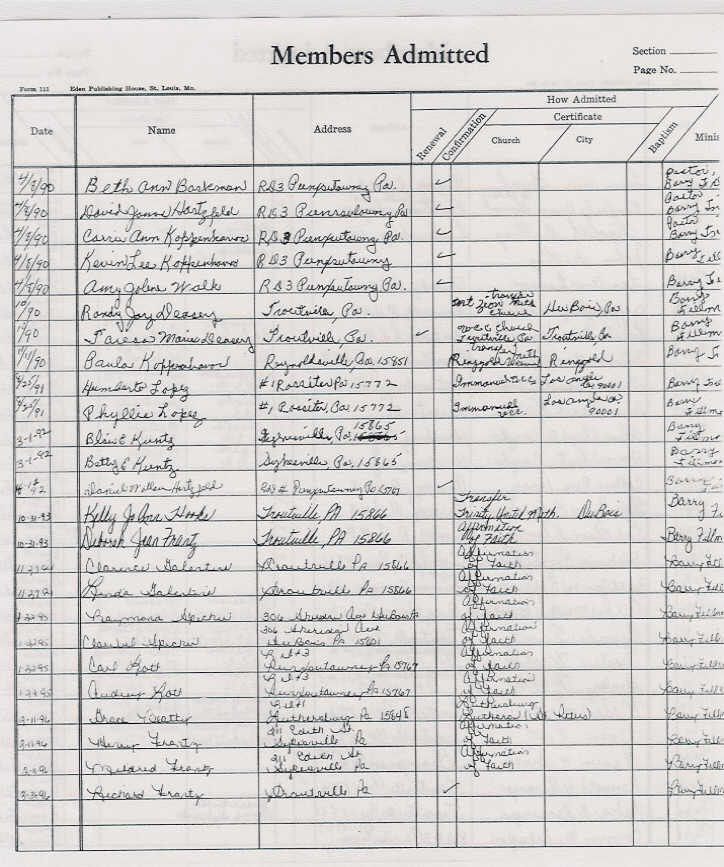 Members Admitted
Section
Page No.
Form 111 Eden Publishing House, St. Louis, Mo.
How Admitted
Certificate
Date Name Address Renewal Confirmation Church City Baptism Minis
4/8/90 Beth Ann Barkman RD3 Punxsutawney Pa. ✓ Pastor, Barry
4/8/90 David James Hartzfeld RD3 Punxsutawney Pa ✓ Pastor Barry
4/8/90 Carrie Ann Koppenhaver RD3 Punxsutawney Pa. ✓ Pastor Barry
4/8/90 Kevin Lee Koppenhaver RD3 Punxsutawney ✓ Barry
4/8/90 Amy Jolene Wolk RD3 Punxsutawney Pa. ✓ Barry
/90 Randy Jay Deasey Troutville, Pa. transfer Mt Zion Meth Church DuBois, Pa Barry Fillm
/90 Marie Deasey Troutville, Pa. ✓ U.C.C. Church Troutville Pa Troutville Pa Barry Fillm
/90 Paula Koppenhaver Reynoldsville, Pa. 15851 transf Ringgold Ringgold Barry
/91 Humberto Lopez #1 Rossiter Pa 15772 Immanuel U.C.C. Los Angeles Ca, 90001 Barry
/91 Phyllis Lopez #1 Rossiter, Pa. 15772 Immanuel ucc. Los Angeles Ca, 90001 Barry Fillmo
3-1-92 Blair E Kuntz Sykesville, Pa. 15865 Barry Fillmo
3-1-92 Betty E Kuntz Sykesville, Pa. 15865 Barry Fillmo
92 Daniel William Hartzfeld Punxsutawney Pa 15767 ✓ Barry
10-31-93 Kelly Jo Ann Hooks Troutville, PA 15866 Transfer Trinity United Meth. DuBois Barry
10-31-93 Deborah Jean Frantz Troutville, PA 15866 Affirmation of Faith Barry Fillm
Clarence Galentine Troutville Pa 15866 Affirmation of Faith Barry Fill
Linda Galentine Troutville Pa 15866 Affirmation of Faith Barry Fill
Raymond 306 Sheridan Ave DuBois Pa Affirmation of Faith Barry Fill
306 Sheridan Ave DuBois PA 15801 Affirmation of Faith Barry Fill
Carl Rott Rd#3 Punxsutawney Pa 15767 Affirmation of Faith Barry Fill
Audrey Rott Rd#3 Punxsutawney Pa 15767 Affirmation of Faith Barry Fill
Grace Beatty Rd#1 Luthersburg Pa 15848 Luthersburg Lutheran Barry Fill
Henry Frantz 211 Edith St Sykesville Pa Affirmation of Faith Barry Fill
Mildred Frantz 211 Edith St Sykesville Pa Affirmation of Faith Barry Fill
Richard Frantz Troutville Pa ✓ Barry Fill